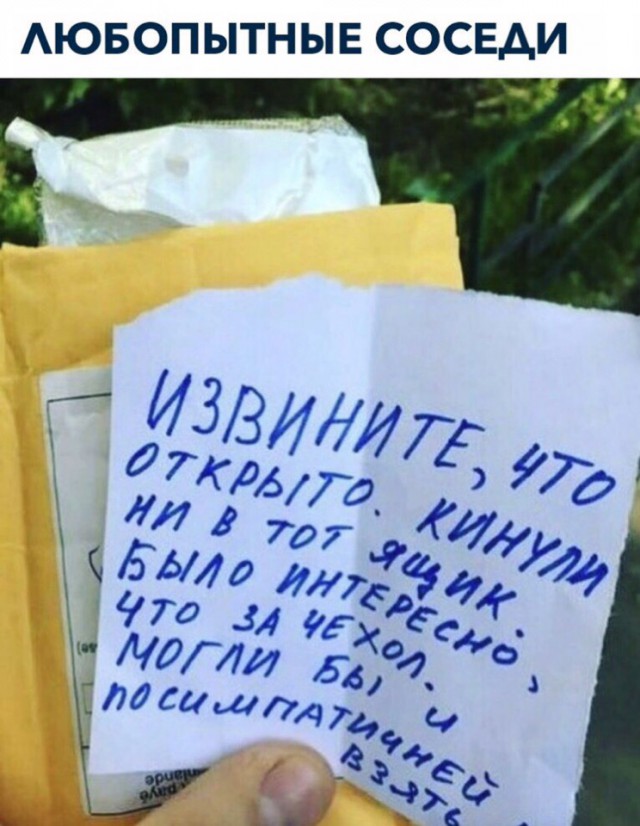 ЛЮБОПЫТНЫЕ СОСЕДИ
ИЗВИНИТЕ, ЧТО
ОТКРЫТО. КИНУЛИ
НИ В ТОТ ЯЩИК.
БЫЛО ИНТЕРЕСНО,
ЧТО ЗА ЧЕХОЛ.
МОГЛИ БЫ И
ПОСИМПАТИЧНЕЙ
ВЗЯТЬ
payé